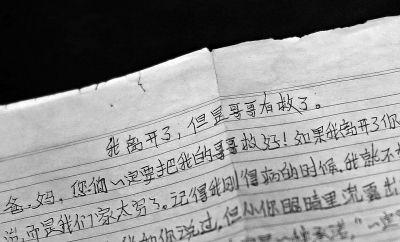 我离开了，但是哥哥有救了。
爸、妈，您们一定要把我的哥哥救好！如果我离开了你
说，而是我们家太穷了。记得我刚得病的时候，我就不
你说过，但从你眼睛里流露出
一定